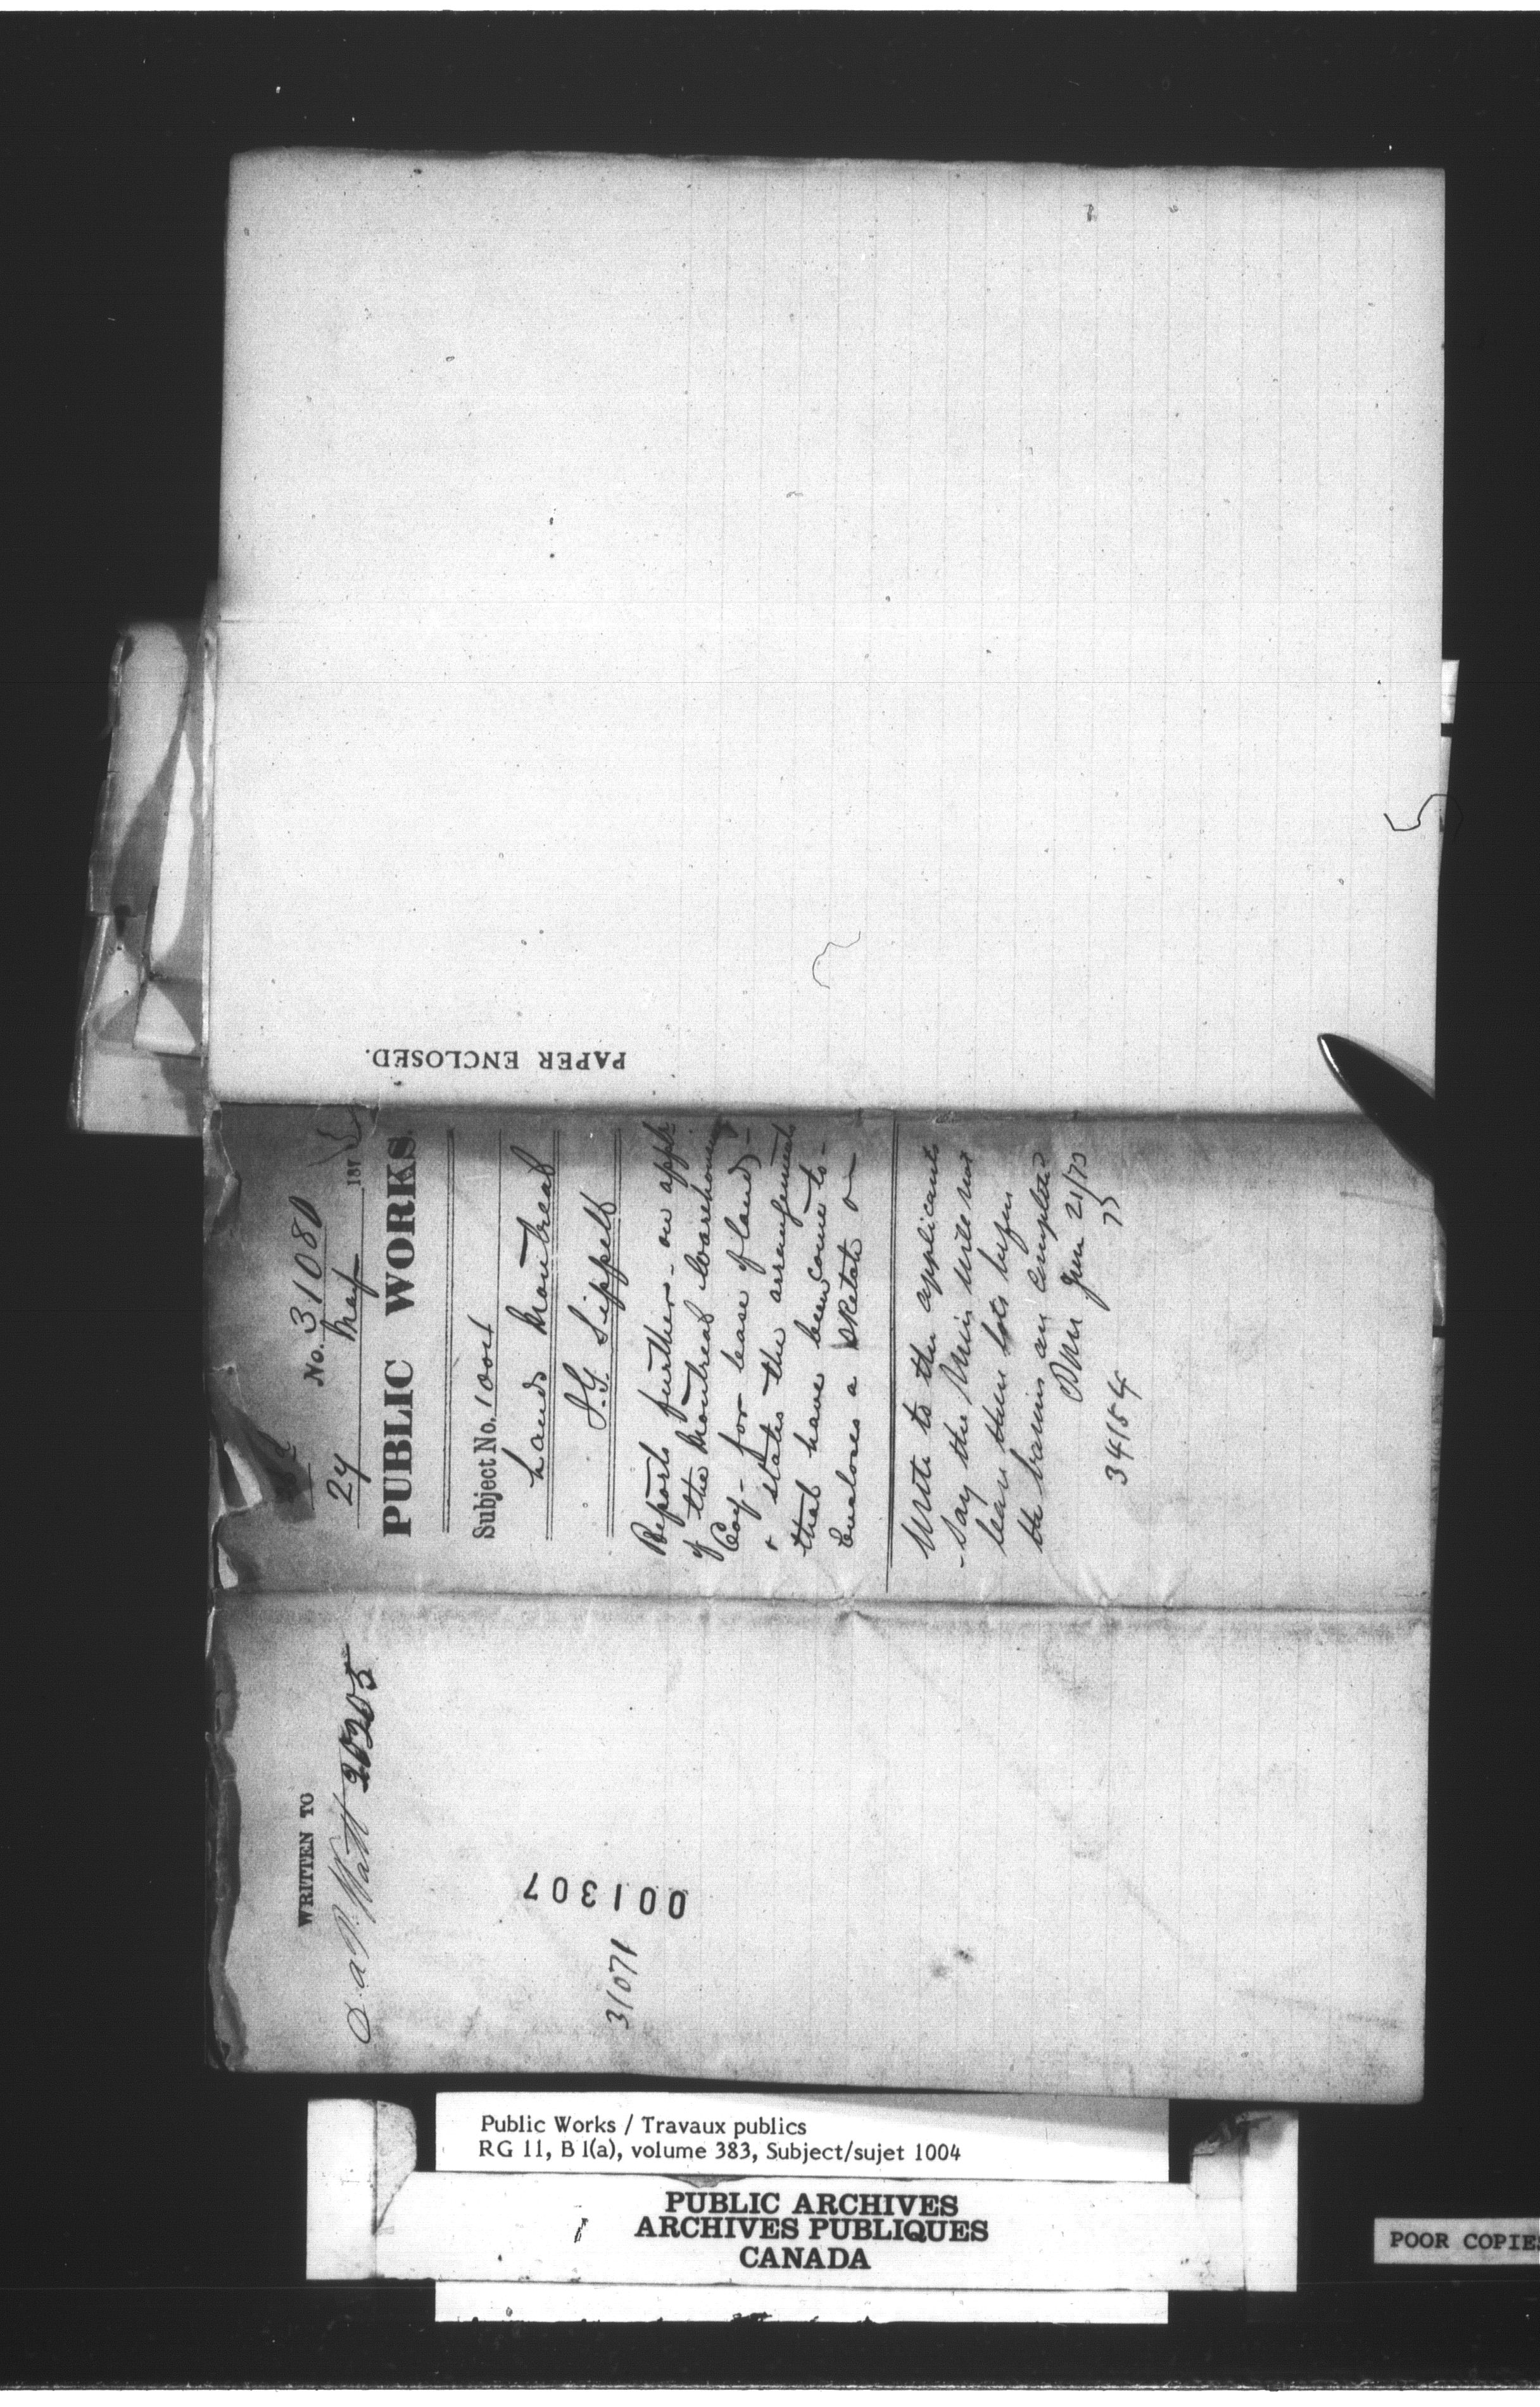 PAPER ENCLOSED.
No. 31080
24 May 1873
PUBLIC WORKS.
Subject No. 1004
Lands Montreal
J.G. Sippell
Reports further - on appl
of the Montreal Warehousing
Coy - for lease of land -
+ states the arrangements
that have been come to -
Encloses a sketch
Write to the applicants
- Say the Min will not
lease them lots before
the basins are completed
June 21/73
34154
WRITTEN TO
D. A. P. Watt 20205
001307
31071
Public Works / Travaux publics
RG 11, B 1(a), volume 383, Subject/sujet 1004
PUBLIC ARCHIVES
ARCHIVES PUBLIQUES
CANADA
POOR COPIES